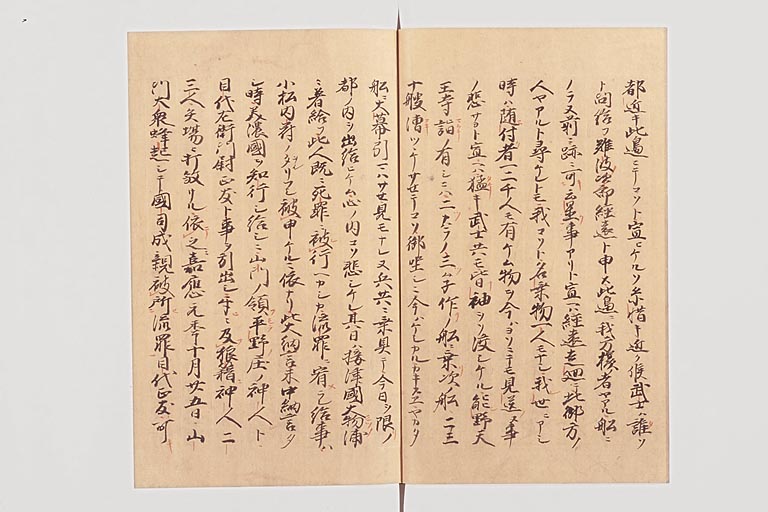 都近キ此邉ニテコソト宣ヒケルソ糸惜キ近ク候武士ハ誰ソ
ト問給フ難波次郎経遠ト申モ此邉ニ我方様者ヤアル船ニ
ノラヌ前ニ跡ニ可云置事アリト宣ハ経遠走廻テ此御方ノ
人ヤアルト尋ケレトモ我コソト名乗物一人モナシ我世ニアリシ
時ハ随付者一二千人モ有ケム物ヲ今ハヨソニテモ見送ル事
ノ悲サヨト宣ヘハ猛キ武士共モ皆袖ヲソ湿シケル熊野天
王寺詣ノ有シニハ二カハラノ三公子作ノ船ニ乗次ノ船二三
十艘漕ツヽケサセテコソ御坐シニ今ハケシカルカキスヱヤカタ
船ニ大幕引ハサセ見モナレヌ兵共ニ乗具テ今日ヲ限ノ
都ノ内ヲ出給ヒケム心ノ内コソ悲シケレ其日ハ摂津國大物浦
ニ着給フ此人既ニ死罪ニ被行ヘカンシカ流罪ニ宥ラレ給事ハ
小松内府ノタリフシ被申ケルニ依テナリ此大納言未中納言タリ
シ時美濃國ヲ知行シ給シニ山門ノ領平野庄ノ神人ト
目代左衛門尉正友ト事ヲ引出シ手ニ及狼籍神人二
三人矢場ニ打殺サル依之嘉應元年十月廿五日ニ山
門大衆蜂起シテ國司成親被所流罪目代正友可